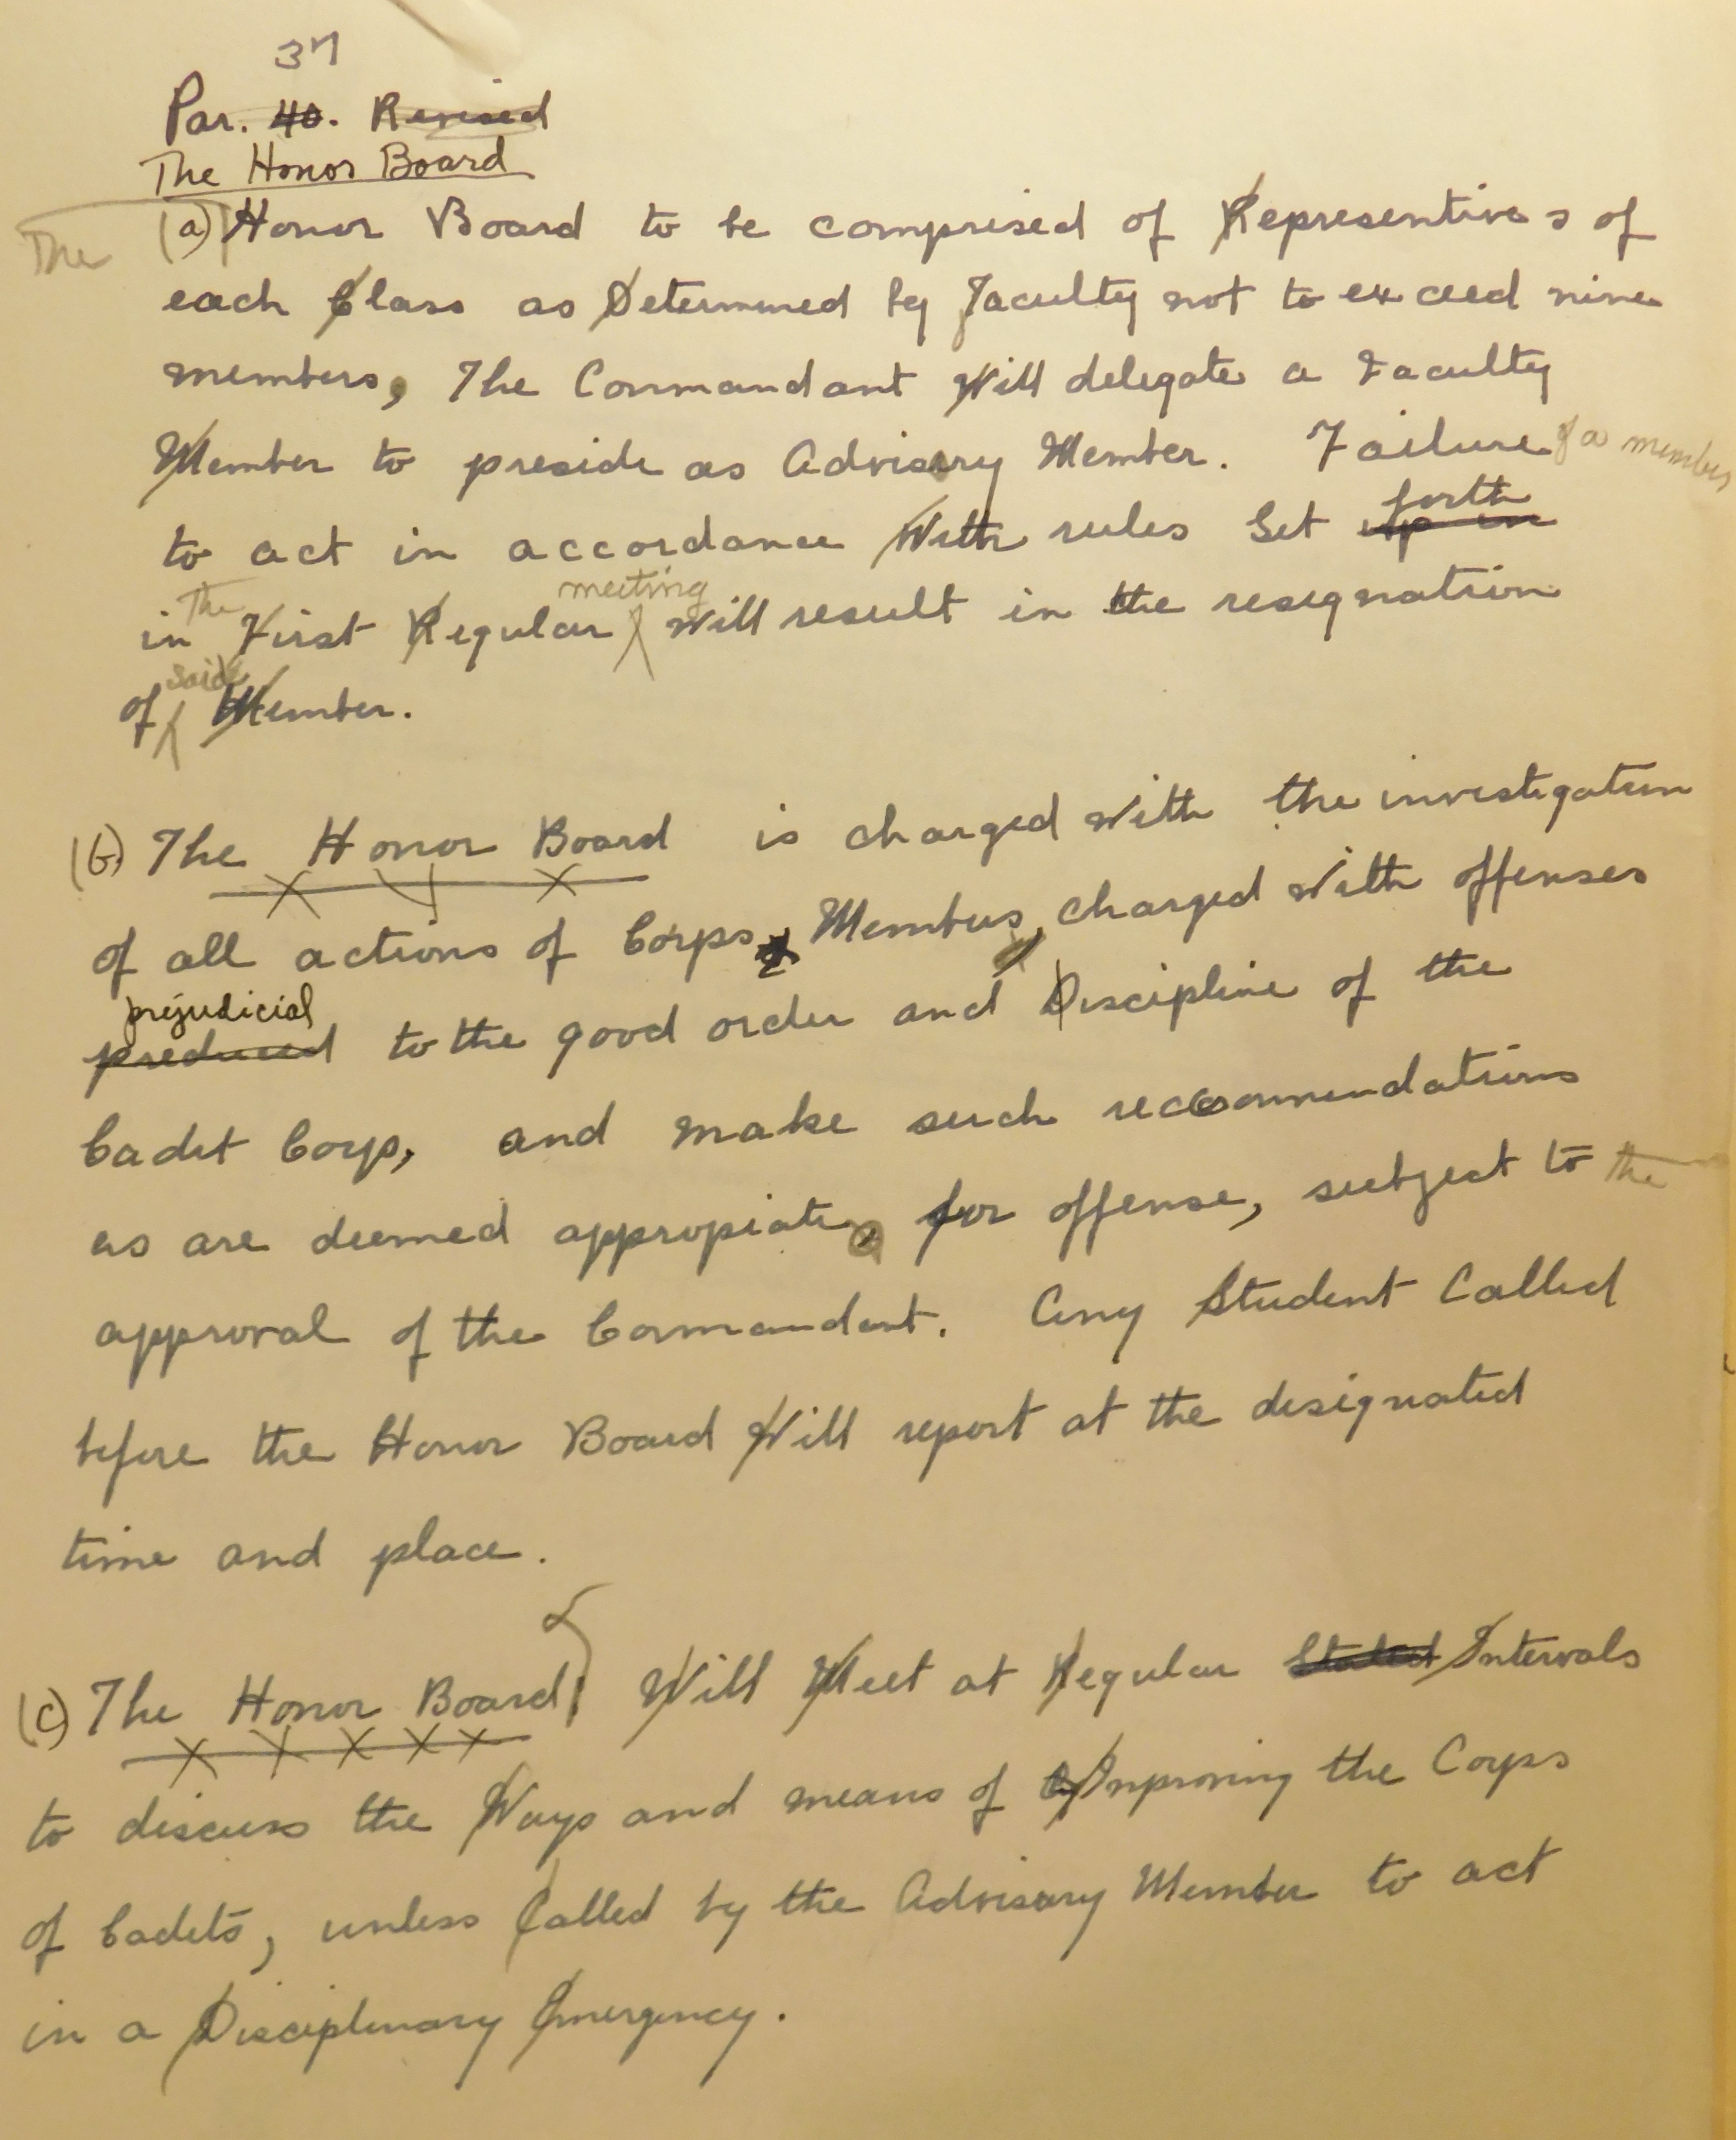 37
Par. 40. Revised
The Honor Board
The (a) Honor Board to be comprised of Representives of
each Class as Determined by Faculty not to exceed nine
members, The Commandant Will delegate a Faculty
Member to preside as Advisary Member. Failure of a member
forth
to act in accordance With rules Set up in
The meeting
in First Regular will result in the resignation
said
of Member.
(b) The Honor Board is charged with the investigation
of all actions of Corps Members, charged with offenses
prejudicial
preduced to the good order and Discipline of the
Cadet Corps, and make such reccommendations
as are deemed appropiate, for offense, subject to the
approval of the Commandant. Any Student Called
before the Honor Board Will report at the designated
time and place.
(c) The Honor Board Will Meet at Regular Stated Intervals
to discuss the Ways and means of Inproving the Corps
of Cadets, unless Called by the Advisary Member to act
in a Disciplinary Emergency.